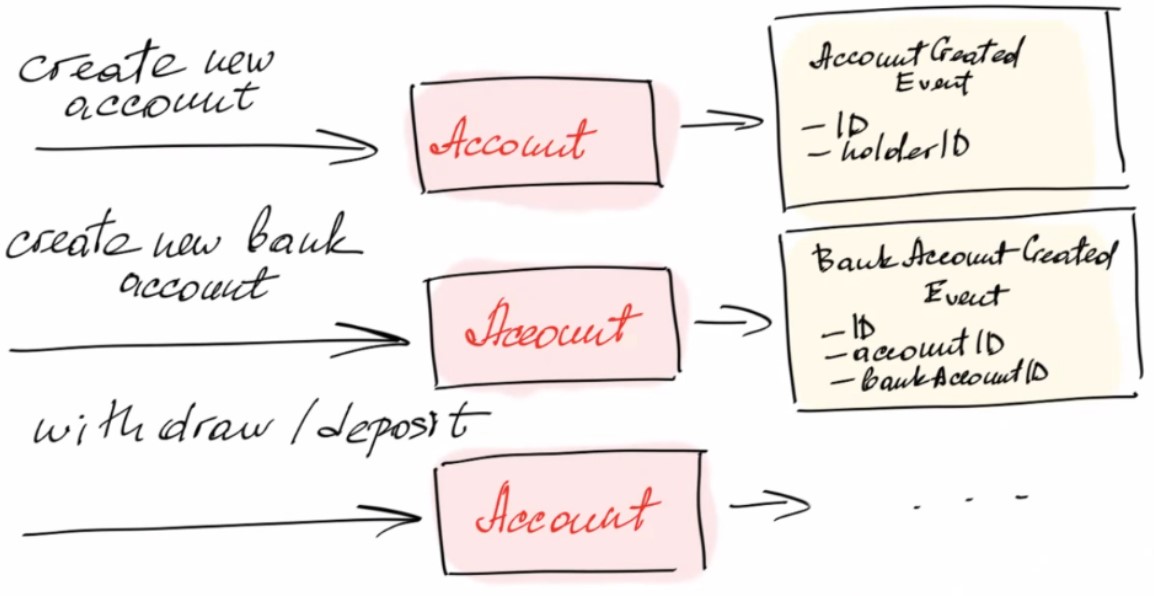 create new
account
Account
AccountCreated
Event
- ID
- holderID
create new bank
account
Account
BankAccountCreated
Event
- ID
- accountID
- bankAccountID
withdraw/deposit
Account
...